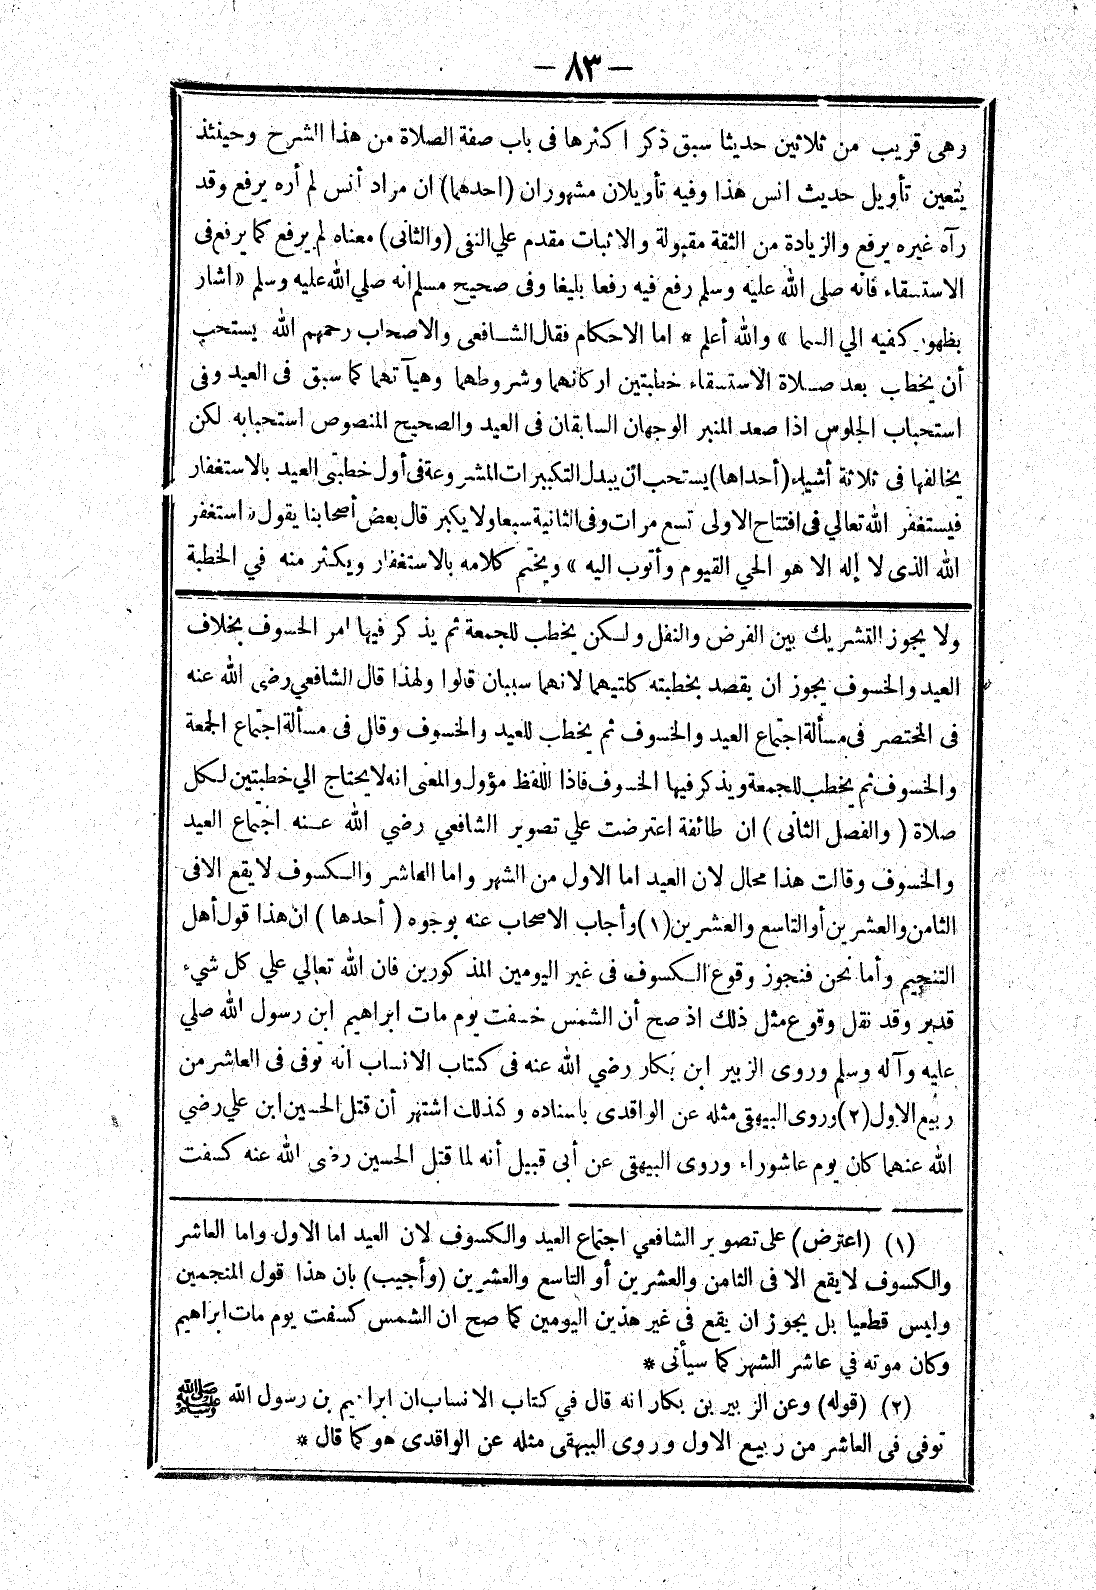 – ٨٣ –
وهى قريب من ثلاثين حديثا سبق ذكر اكثرها فى باب صفة الصلاة من هذا الشرح وحينئذ
يتعين تأويل حديث انس هذا وفيه تأويلان مشهوران (احدهما) ان مراد أنس لم أره يرفع وقد
رآه غيره يرفع والزيادة من الثقة مقبولة والاثبات مقدم علي النفى (والثانى) معناه لم يرفع كما يرفع فى
الاستسقاء فانه صلى الله عليه وسلم رفع فيه رفعا بليغا وفى صحيح مسلم انه صلي الله عليه وسلم «اشار
بظهور كفيه الي السما » والله أعلم * اما الاحكام فقال الشافعى والاصحاب رحمهم الله يستحب
أن يخطب بعد صلاة الاستسقاء خطبتين اركانهما وشروطهما وهيآتهما كما سبق فى العيد وفى
استحباب الجلوس اذا صعد المنبر الوجهان السابقان فى العيد والصحيح المنصوص استحبابه لكن
يخالفها فى ثلاثة أشياء (أحداها) يستحب ان يبدل التكبيرات المشروعة فى أول خطبتى العيد بالاستغفار
فيستغفر الله تعالي فى افتتاح الاولى تسع مرات وفى الثانية سبعا ولا يكبر قال بعض أصحابنا يقول «استغفر
الله الذى لا إله الا هو الحي القيوم وأتوب اليه » ويختم كلامه بالاستغفار ويكثر منه في الخطبة
ولا يجوز التشريك بين الفرض والنفل ولكن يخطب للجمعة ثم يذكر فيها امر الخسوف بخلاف
العيد والخسوف يجوز ان يقصد بخطبته كلتيهما لانهما سببان قالوا ولهذا قال الشافعي رضى الله عنه
فى المختصر فى مسألة اجتماع العيد والخسوف ثم يخطب للعيد والخسوف وقال فى مسألة اجتماع الجمعة
والخسوف ثم يخطب للجمعة ويذكر فيها الخسوف فاذا اللفظ مؤول والمعنى انه لا يحتاج الي خطبتين لكل
صلاة ( والفصل الثانى ) ان طائفة اعترضت علي تصوير الشافعي رضي الله عنه اجتماع العيد
والخسوف وقالت هذا محال لان العيد اما الاول من الشهر واما العاشر والكسوف لا يقع الا فى
الثامن والعشرين أو التاسع والعشرين (١) وأجاب الاصحاب عنه بوجوه ( أحدها ) ان هذا قول أهل
التنجيم وأما نحن فنجوز وقوع الكسوف فى غير اليومين المذكورين فان الله تعالي علي كل شيء
قدير وقد نقل وقوع مثل ذلك اذ صح أن الشمس خسفت يوم مات ابراهيم ابن رسول الله صلي
عليه وآله وسلم وروى الزبير ابن بكار رضي الله عنه فى كتاب الانساب انه توفى فى العاشر من
ربيع الاول (٢) وروى البيهقى مثله عن الواقدى باسناده وكذلك اشتهر أن قتل الحسين ابن علي رضي
الله عنهما كان يوم عاشوراء وروى البيهقى عن أبى قبيل أنه لما قتل الحسين رضى الله عنه كسفت
(١) (اعترض) على تصوير الشافعي اجتماع العيد والكسوف لان العيد اما الاول واما العاشر
والكسوف لا يقع الا فى الثامن والعشرين أو التاسع والعشرين (وأجيب) بان هذا قول المنجمين
وليس قطعيا بل يجوز ان يقع فى غير هذين اليومين كما صح ان الشمس كسفت يوم مات ابراهيم
وكان موته في عاشر الشهر كما سيأتى *
(٢) (قوله) وعن الزبير بن بكار انه قال في كتاب الانساب ان ابراهيم بن رسول الله ﷺ
توفى فى العاشر من ربيع الاول وروى البيهقى مثله عن الواقدى هو كما قال *